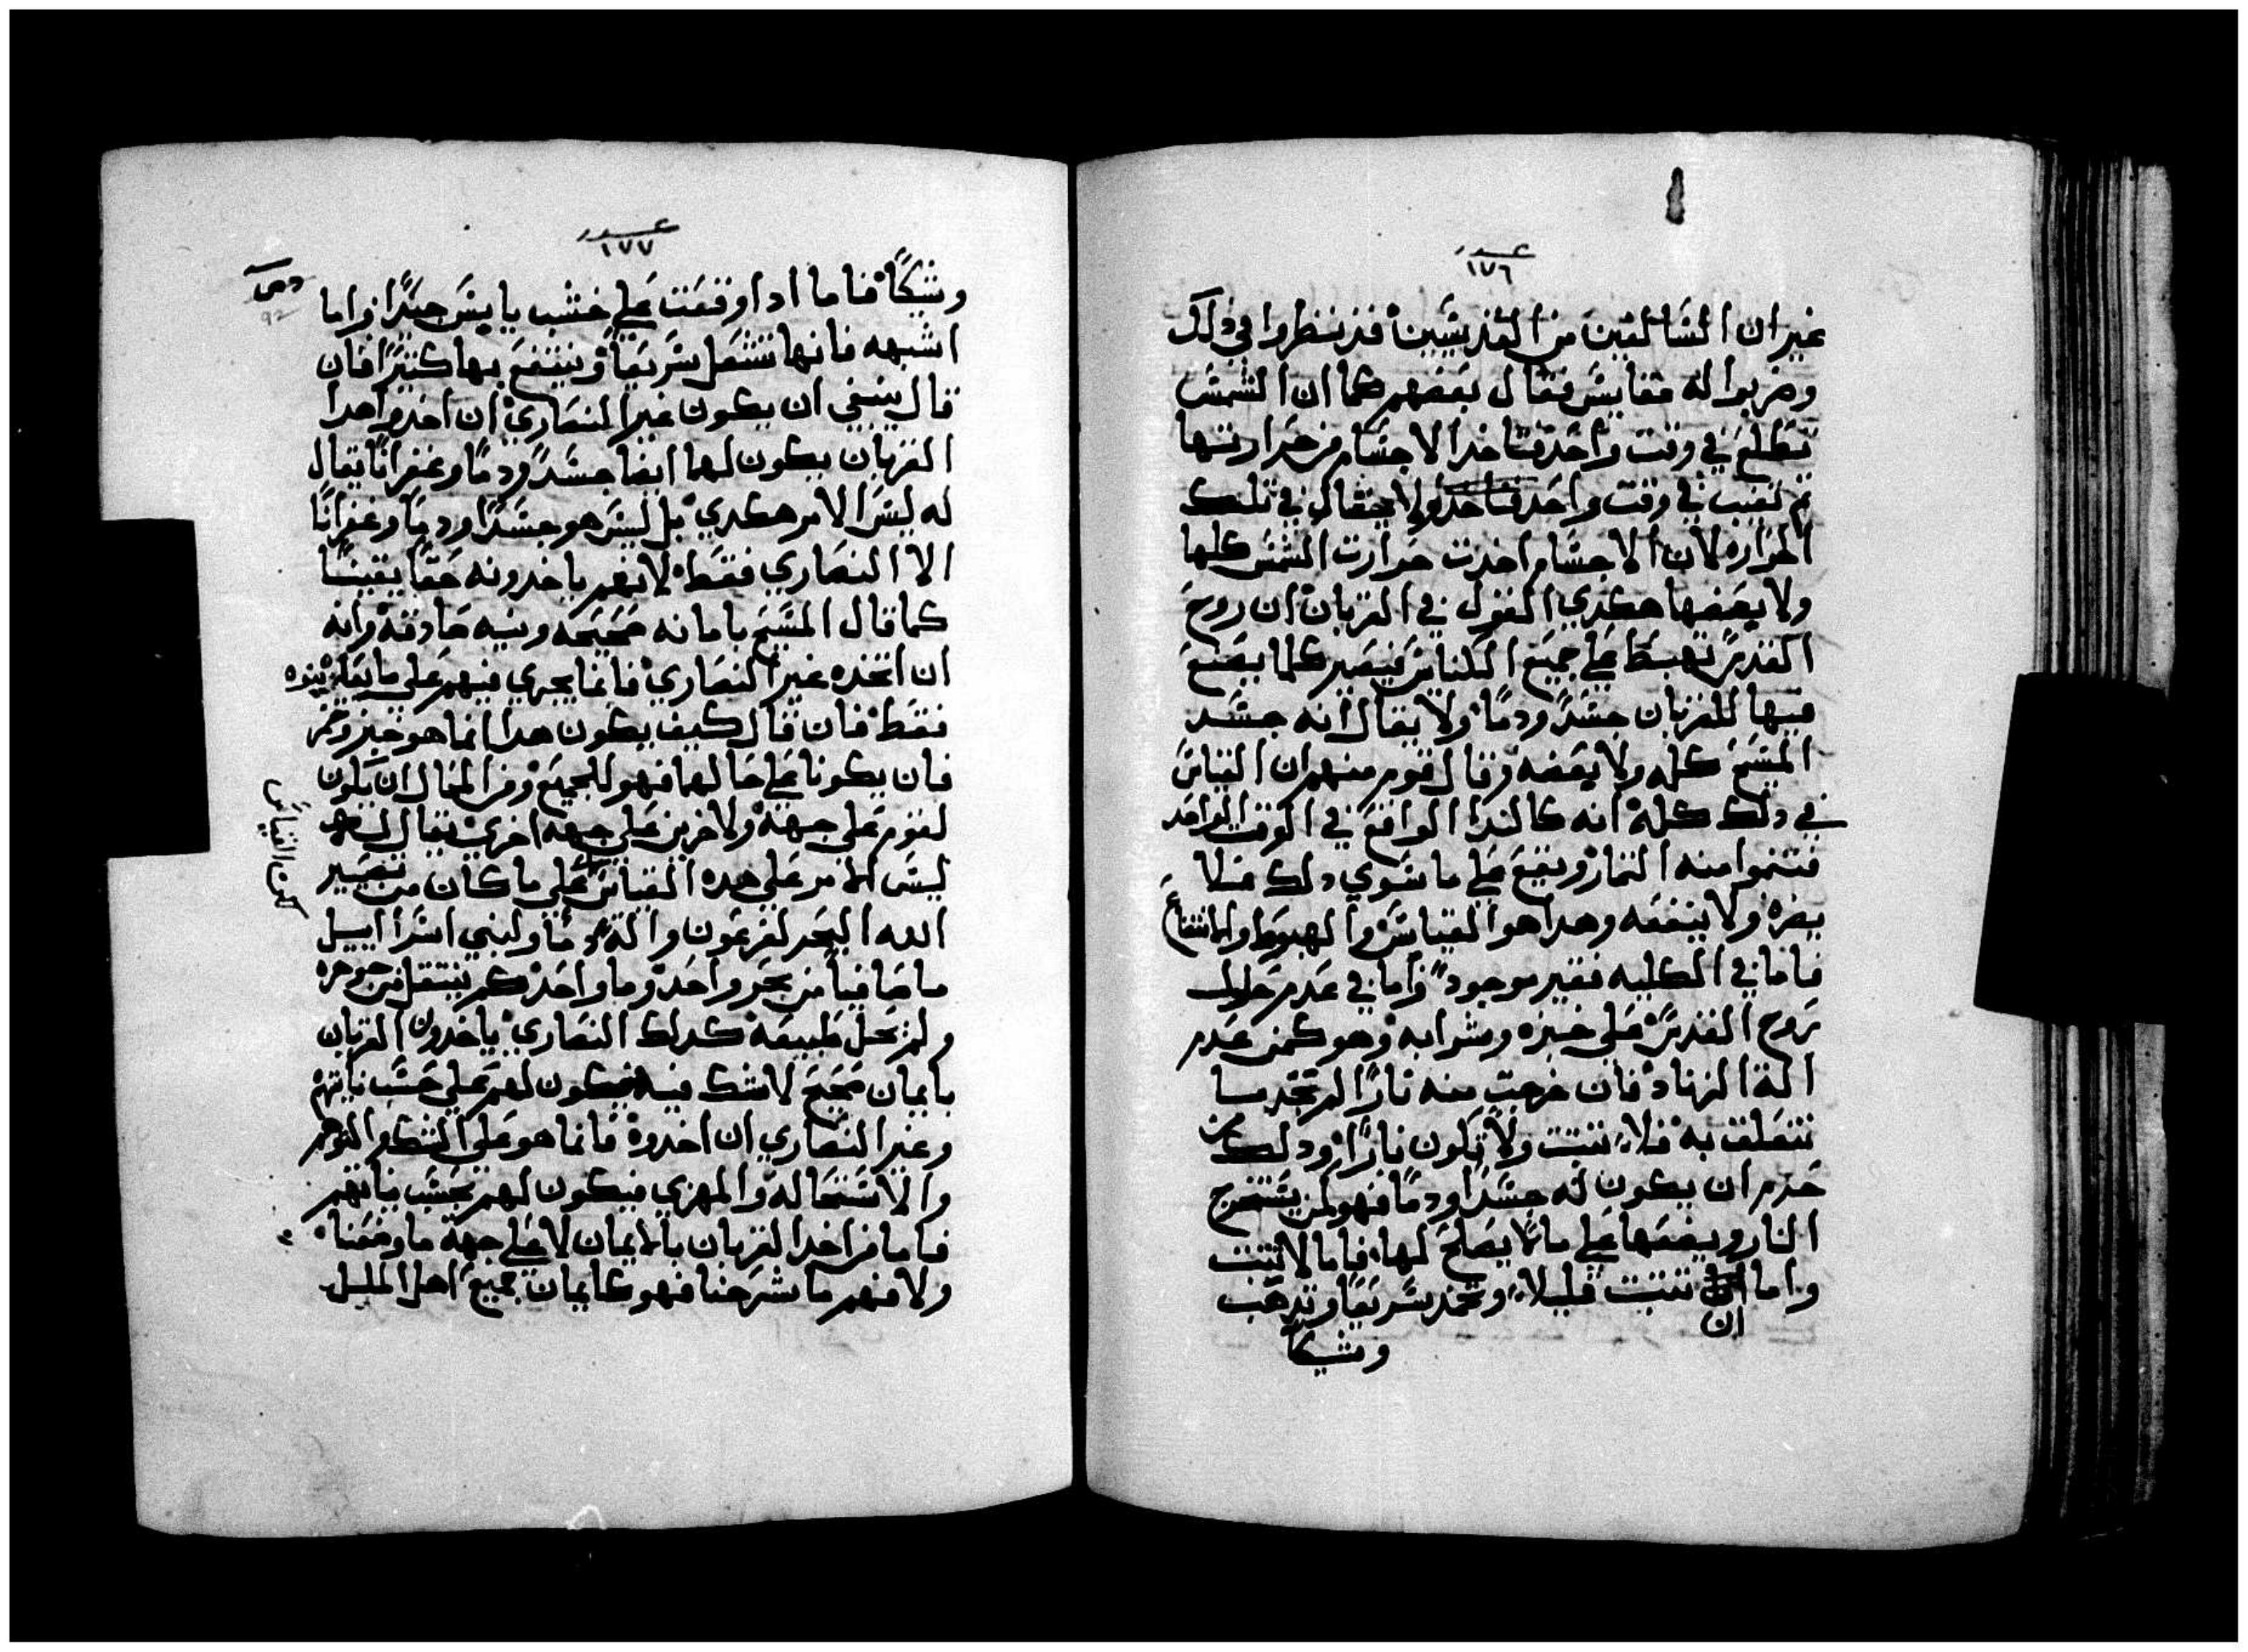 عدد
١٧٦
غير ان السالفين من القديسين قد نظروا في ذلك
وضربوا له مقاييس فقال بعضهم كما ان الشمس
تطلع في وقت واحد فتاخد الاجسام من حرارتها
ثم تغيب في وقت واحد ولا يقال في تلك
الحراره لان الاجسام اخدت حرارت الشمس كلها
ولا بعضها هكدي القول في القربان ان روح
القدس تهبط علي جميع الكنايس فيصير كلما يصنع
فيها للقربان جسدا ودما ولا يقال انه جسد
المسيح كله ولا بعضه وقال قوم منهم ان القياس
في دلك كله انه كالندا الواقع في الوقت الواحد
فتنموا منه الثمار ويقع علي ما سوي دلك مثلا
يضره ولا ينفعه وهدا هو القياس والهبوط والانتفاع
فاما في الكليه فغير موجود واما في عدم حلول
روح القدس علي خبزه وشرابه وهو كمن عدم
الة الزناد فان خرجت منه نارا لم تجد ما
تتعلق به فلا تثبت ولا تكون نارا ودلك من
حرم ان يكون له جسدا ودما فهو لمن يستخرج
النار ويضعها علي ما لا يصلح لها فاما لا تثبت
واما ان تثبت قليلا وتخمد سريعا وتدهب
وشيكا
عدد
١٧٧
92
وشيكا فاما ادا وقعت علي خشب يابس جيدا او ما
اشبهه فانها تشعل سريعا وينتفع بها كثيرا فان
قال ينبغي ان يكون غير النصاري ان اخدوا هدا
القربان يكون لهم ايضا جسدا ودما وغفرانا يقال
له ليس الامر هكدي بل ليس هو جسدا ودما وغفرانا
الا النصاري فقط لانهم ياخدونه حقا يقينا
كما قال المسيح بامانه صحيحه ونيه صادقه وانه
ان اتخده غير النصاري فانما يجري فيهم علي ما يعاينوه
فقط فان قال كيف يكون هدا انما هو خبز وخمر
فان يكونا علي حالهما فهو للجميع ومن المحال ان يكون
لقوم علي جهة ولاخرين علي جهه اخري يقال
ليس الامر علي هده القياس علي ما كان من تصيير
الله البحر لفرعون واله دما ولبني اسراييل
ما صافيا من بحر واحد وما واحد لم ينتقل من جوهره
ولم تحل طبيعه كدلك النصاري ياخدون القربان
بايمان صحيح لا شك فيه فيكون لهم علي حسب نياتهم
وغير النصاري ان اخدوه فانما هو علي الشك والتوهم
والاستحاله والمهزي فيكون لهم بحسب نياتهم
فاما من اخد القربان بالايمان لا علي جهة ما وضعنا
ولا فهم ما شرحنا فهو كايمان جميع اهل الملل
القياس